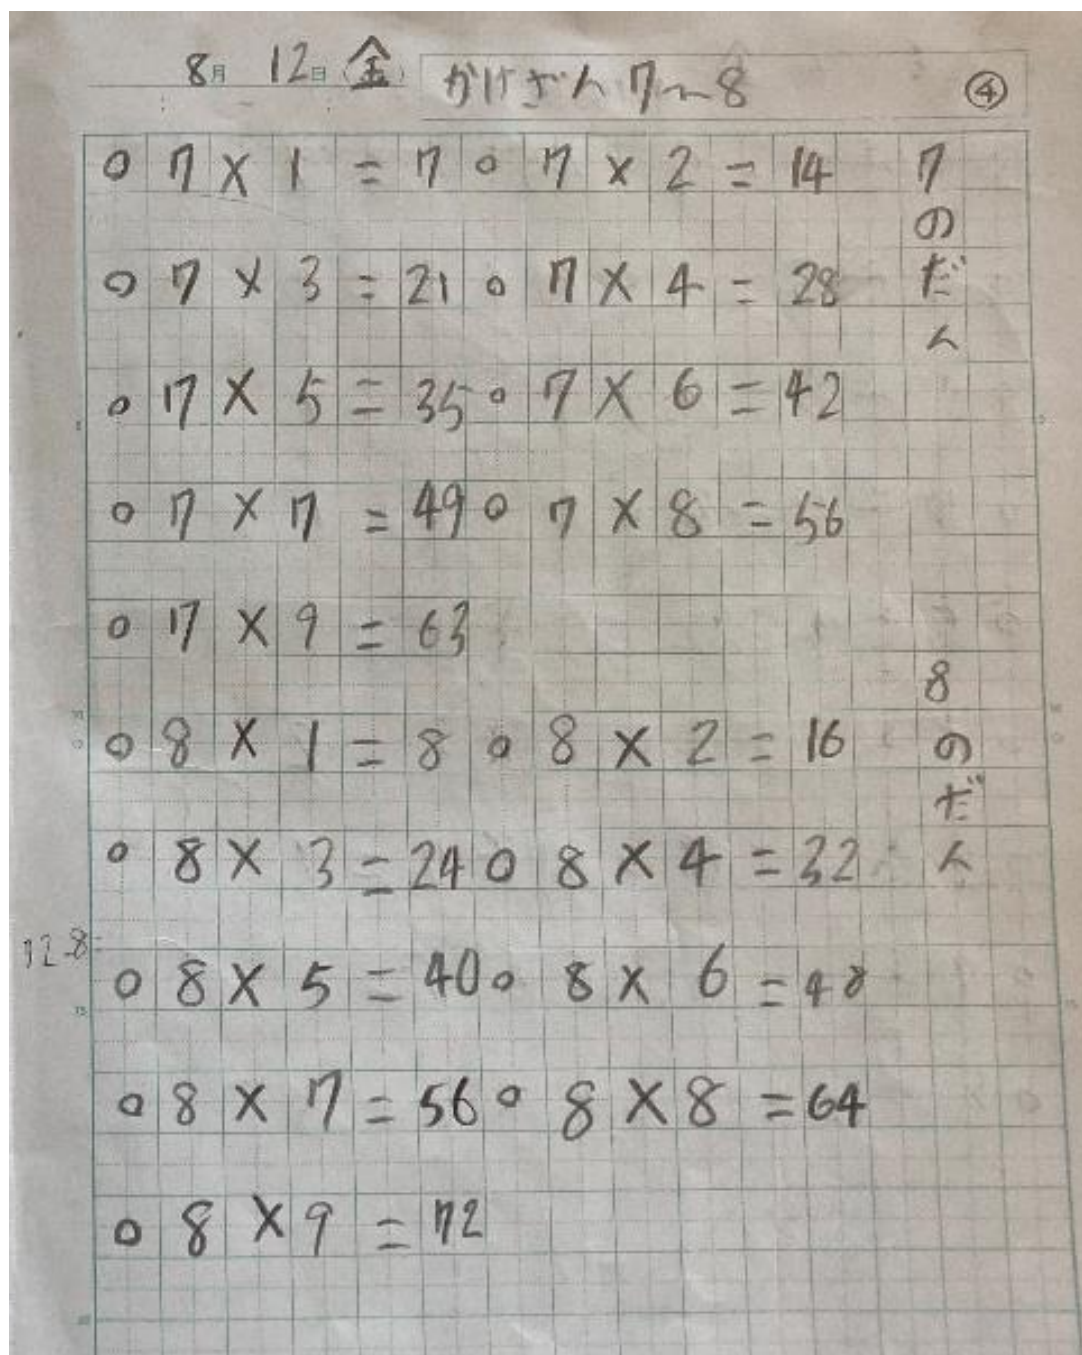 8月 12日(金) かけざん7~8 ④
○ 7×1=7 ○ 7×2=14
○ 7×3=21 ○ 7×4=28
○ 7×5=35 ○ 7×6=42
○ 7×7=49 ○ 7×8=56
○ 7×9=63
7のだん
○ 8×1=8 ○ 8×2=16
○ 8×3=24 ○ 8×4=32
12-8
○ 8×5=40 ○ 8×6=48
○ 8×7=56 ○ 8×8=64
○ 8×9=72
8のだん